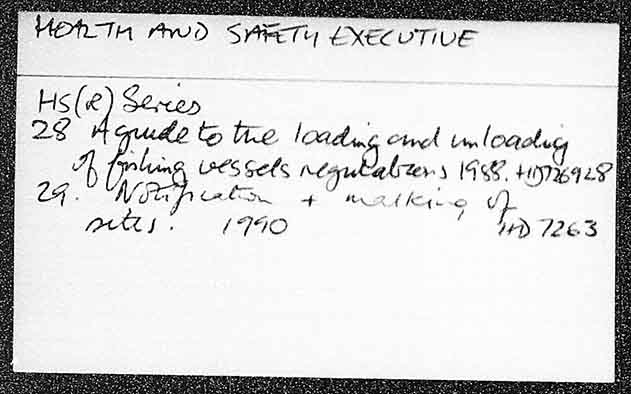 HEALTH AND SAFETY EXECUTIVE
HS(R) Series
28 A guide to the loading and unloading
of fishing vessels regulations 1988. HD726928
29. Notification + marking of
sites. 1990 HD 7263